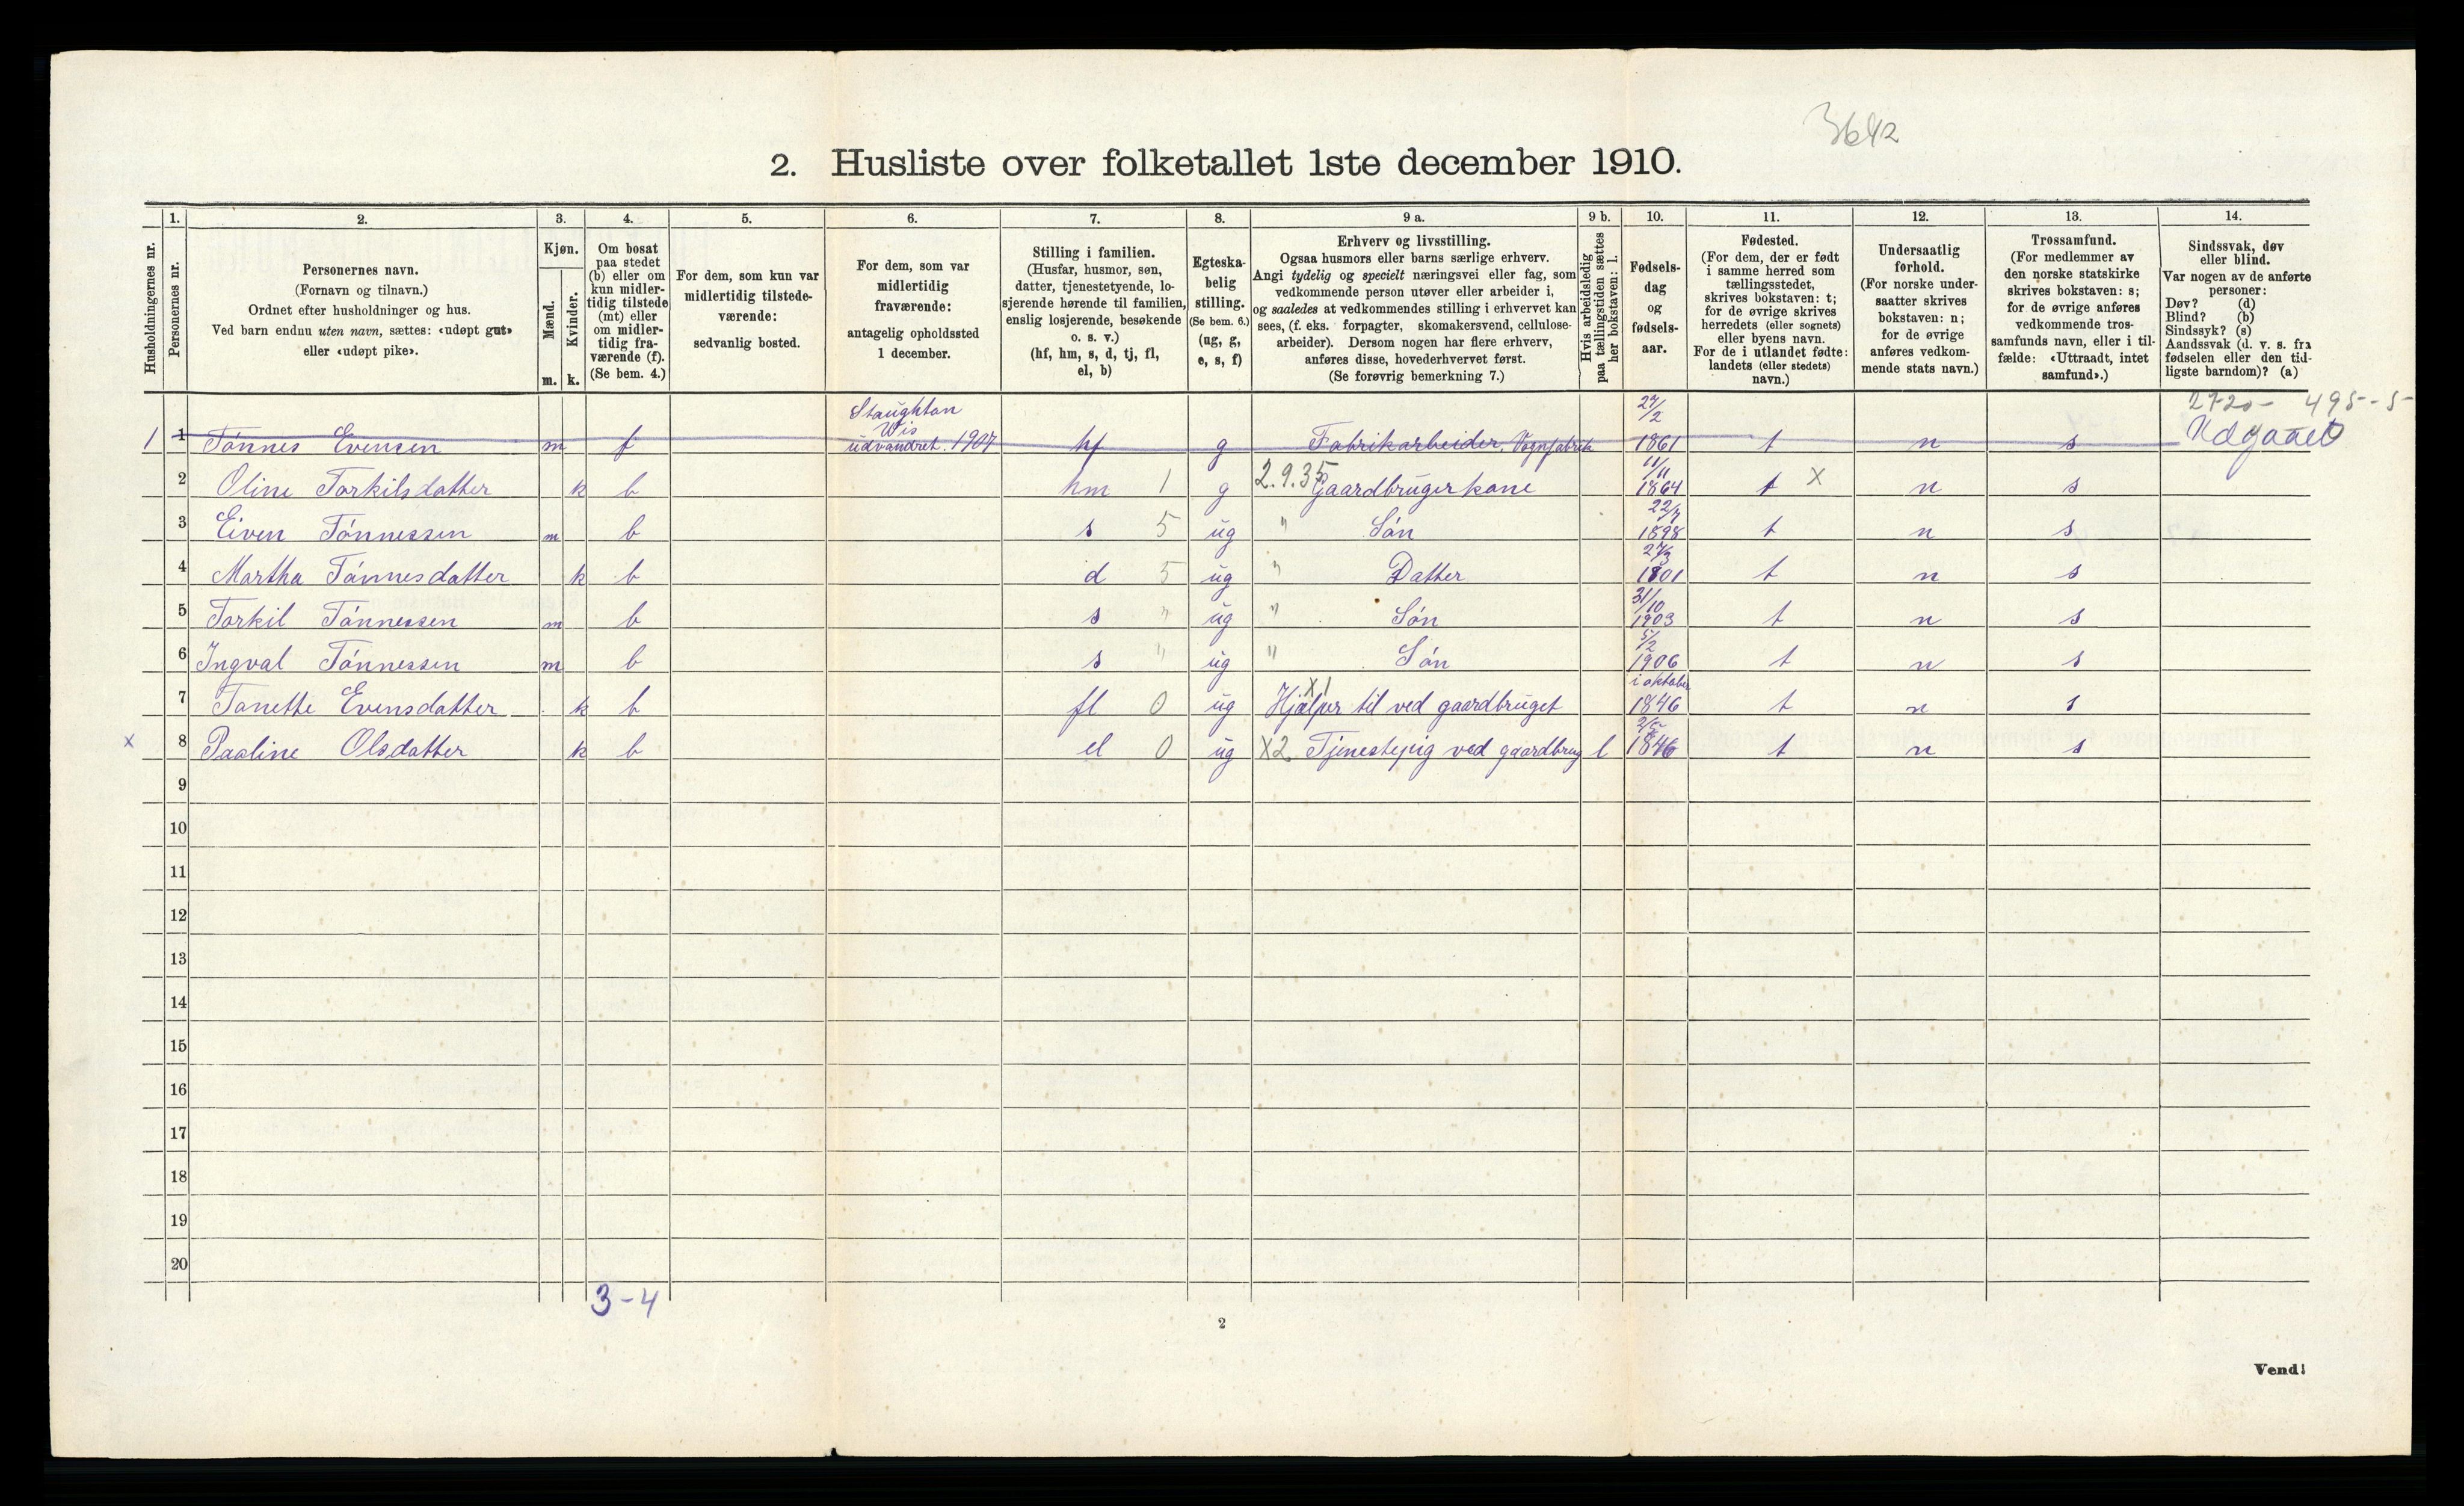 3642
2. Husliste over folketallet 1ste december 1910.
1. 2. 3. 4. 5. 6. 7. 8. 9 a. 9 b. 10. 11. 12. 13. 14.
Husholdningernes nr.
Personernes nr.
Personernes navn.
(Fornavn og tilnavn.)
Ordnet efter husholdninger og hus.
Ved barn endnu uten navn, sættes: «udøpt gut»
eller «udøpt pike».
Kjøn.
Mænd.
Kvinder.
m. k.
Om bosat
paa stedet
(b) eller om
kun midler-
tidig tilstede
(mt) eller
om midler-
tidig fra-
værende (f).
(Se bem. 4.)
For dem, som kun var
midlertidig tilstede-
værende:
sedvanlig bosted.
For dem, som var
midlertidig
fraværende:
antagelig opholdssted
1 december.
Stilling i familien.
(Husfar, husmor, søn,
datter, tjenestetyende, lo-
sjerende hørende til familien,
enslig losjerende, besøkende
o. s. v.)
(hf, hm, s, d, tj, fl,
el, b)
Egteska-
belig
stilling.
(Se bem. 6.)
(ug, g,
e, s, f)
Erhverv og livsstilling.
Ogsaa husmors eller barns særlige erhverv.
Angi tydelig og specielt næringsvei eller fag, som
vedkommende person utøver eller arbeider i,
og saaledes at vedkommendes stilling i erhvervet kan
sees, (f. eks. forpagter, skomakersvend, cellulose-
arbeider). Dersom nogen har flere erhverv,
anføres disse, hovederhvervet først.
(Se forøvrig bemerkning 7.)
Hvis arbeidsledig
paa tællingstiden sættes
her bokstaven: l.
Fødsels-
dag
og
fødsels-
aar.
Fødested.
(For dem, der er født
i samme herred som
tællingsstedet,
skrives bokstaven: t;
for de øvrige skrives
herredets (eller sognets)
eller byens navn.
For de i utlandet fødte:
landets (eller stedets)
navn.)
Undersaatlig
forhold.
(For norske under-
saatter skrives
bokstaven: n;
for de øvrige
anføres vedkom-
mende stats navn.)
Trossamfund.
(For medlemmer av
den norske statskirke
skrives bokstaven: s;
for de øvrige anføres
vedkommende tros-
samfunds navn, eller i til-
fælde: «Uttraadt, intet
samfund».)
Sindssvak, døv
eller blind.
Var nogen av de anførte
personer:
Døv? (d)
Blind? (b)
Sindssyk? (s)
Aandssvak (d. v. s. fra
fødselen eller den tid-
ligste barndom)? (a)
Staughton
Wis
27/2
2720 - 495 - 5 -
1 1 Tønnes Evensen m f udvandret. 1907 hf g Fabrikarbeider, Vognfabrik 1861 t n s Udgaaet
11/11
2 Oline Torkilsdatter k b hm 1 g 2.9.35 Gaardbrugerkone 1864 t x n s
22/7
3 Eiven Tønnessen m b s 5 ug " Søn 1898 t n s
27/3
4 Martha Tønnesdatter k b d 5 ug " Datter 1801 t n s
31/10
5 Torkil Tønnessen m b s " ug " Søn 1903 t n s
5/2
6 Ingval Tønnessen m b s " ug " Søn 1906 t n s
x 1 i oktober
7 Tonette Evensdatter k b fl 0 ug Hjælper til ved gaardbruget 1846 t n s
x 8 Paaline Olsdatter k b el 0 ug x2 Tjenestepig ved gaardbrug l 1846 t n s
9
10
11
12
13
14
15
16
17
18
19
20
3 - 4
2
Vend!